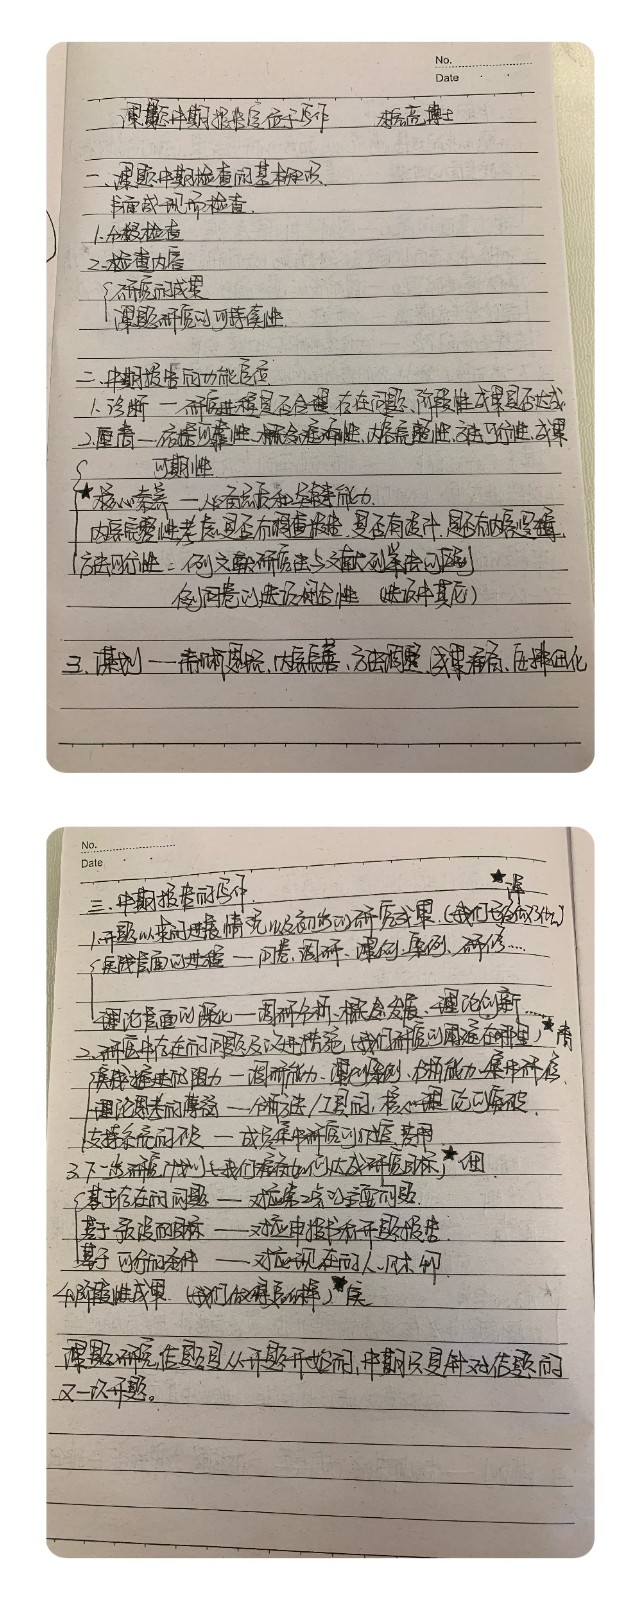 No.
Date
课题中期报告定位于写作 博士
一、课题中期检查的基本
书面或现场检查.
1.分级检查
2.检查内容
研究的成果
课题研究的可持续性
二.中期报告的功能定位
1.诊断——研究进程是否合理,存在问题、阶段性成果是否达成
2.厘清——可靠性、概念准确性、内容完整性、方法可行性、成果
可期性.
★核心素养——必备品质和关键能力.
内容完整性考虑:是否有调查报告,是否有设计,是否有内容
方法可行性:例文献研究法与文献列举法的区别
例问卷的
三.谋划——内容完善、方法调整、成果
No.
Date
三.中期报告的写作.
1.开题以来的进展情况以及初步的研究成果.(我们已经做了什么)
实践层面的进程——问卷、调研、课例、案例、研修……
理论层面的深化——调研分析、概念发展、理论创新……
2.研究中存在的问题及改进措施(我们研究的困惑在哪里)★清
实践推进的阻力——调研能力、课例案例、分析能力、集中研修.
理论思考的薄弱——分析方法/工具的,核心理论的突破.
支持系统的不足——成员集中研究的、费用
3.下一步研究计划(我们如何达成研究目标)★细
基于存在的问题——对应第2点的主要问题.
基于预设的目标——对应申报书和开题报告.
基于可行的条件——对应现在的人、财、物
4.阶段性成果.(我们做得怎么样)★实
课题研究,信题是从开题开始的,中期只是针对信题的
又一次开题。